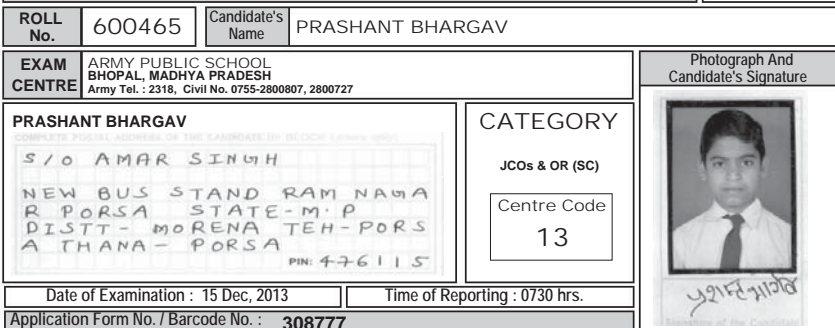 ROLL No. 600465 Candidate's Name PRASHANT BHARGAV
EXAM CENTRE
ARMY PUBLIC SCHOOL
BHOPAL, MADHYA PRADESH
Army Tel. : 2318, Civil No. 0755-2800807, 2800727
Photograph And
Candidate's Signature
PRASHANT BHARGAV
COMPLETE POSTAL ADDRESS OF THE CANDIDATE
S/O AMAR SINGH
NEW BUS STAND RAM NAGA
R PORSA STATE-M.P
DISTT- MORENA TEH-PORS
A THANA- PORSA
PIN: 476115
CATEGORY
JCOs & OR (SC)
Centre Code
13
Signature of the Candidate
Date of Examination : 15 Dec, 2013
Time of Reporting : 0730 hrs.
Application Form No. / Barcode No. : 308777